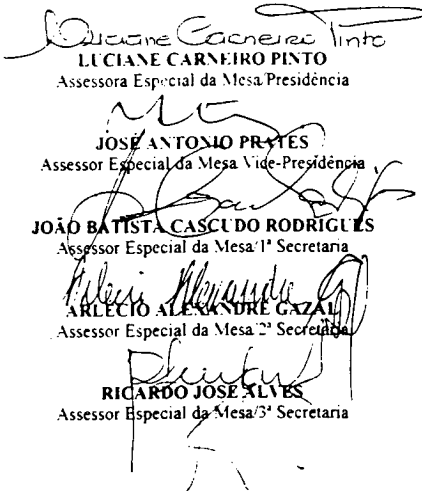 Luciane Carneiro Pinto
LUCIANE CARNEIRO PINTO
Assessora Especial da Mesa/Presidência
JOSÉ ANTONIO PRATES
Assessor Especial da Mesa Vice-Presidência
JOÃO BATISTA CASCUDO RODRIGUES
Assessor Especial da Mesa/1ª Secretaria
Arlecio Alexandre
ARLÉCIO ALEXANDRE GAZAL
Assessor Especial da Mesa/2ª Secretaria
RICARDO JOSÉ ALVES
Assessor Especial da Mesa/3ª Secretaria